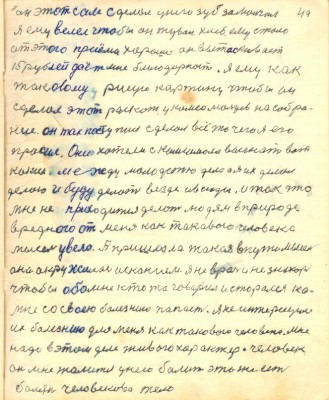 он этот сам сделал у него зуб заболел 49
Я ему велел чтобы он кушал хлеб ему стало
от этого приёма хорошо он вытаскивает
15 рублей даёт мне благодарность. Я ему как
таковому рисую картину чтобы он
сделал этот рассказ у комсомольцев на собра-
ние. он так поступил сделал всё то чего я его
просил. Они хотели с комсомола выгнать
между молодежью дела я их делал
делаю и буду делать везде и всюду. и так это
мне не приходится делать людям в природе
вредного от меня как такового человека
Пришла ла такая внутом мысль
она окружила исканием. Я не враг и не знахарь
чтобы обо мне кто то говорил и старался ко-
мне со своею болезнию попасть. Я не интересуюсь
их болезнию для меня как такового человека. мне
надо в этом деле живого характер. человек
он мне жалится у него болит это же есть
болит человеково тело